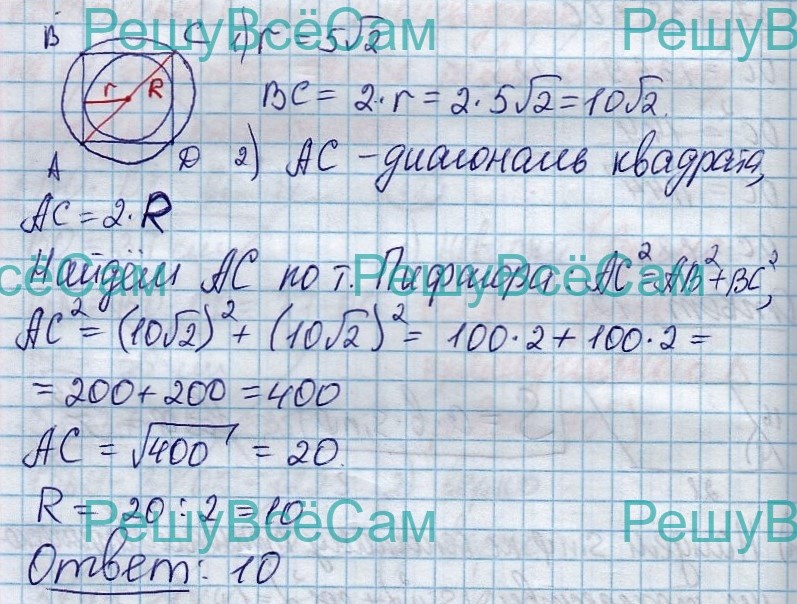 РешуВсёСам РешуВ
B C 1) r = 5√2
r R
BC = 2·r = 2·5√2 = 10√2.
A D 2) AC – диагональ квадрата,
AC = 2·R
Найдём AC по т. Пифагора AC² = AB² + BC²,
всёСам РешуВсёСам
AC² = (10√2)² + (10√2)² = 100·2 + 100·2 =
= 200 + 200 = 400
AC = √400 = 20.
R = 20 : 2 = 10
РешуВсёСам РешуВ
Ответ: 10